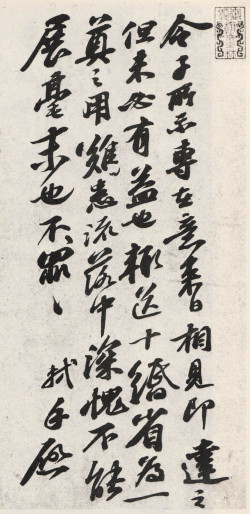 令子所示專在意來日相見即達之
但未必有益也輒送十緡省為一
奠之用患流落中深愧不能
展毫末也不罪〻
軾手啟